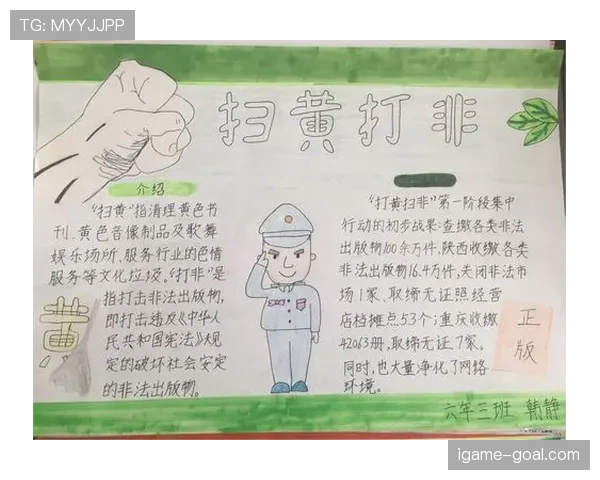 TG: MYYJJPP
扫黄打非
介绍
"扫黄"指清理黄色书
刊、黄色音像制品及歌舞
娱乐场所、服务行业的色情
服务等文化垃圾。"打非"是
指打击非法出版物,
即打击违反《中华人
民共和国宪法》规
定的破坏社会安定
的非法出版物。
黄
"打黄扫非"第一阶段集中
行动的初步战果:查缴各类非法
出版物100余万件,陕西收缴各类
非法出版物16.4万件,关闭非法市
场1家、取缔无证照经营
店档摊点53个;重庆收缴
42063册,取缔无证7家。
同时,也大量净化了网络
环境。
正
版
六年三班 韩静
igame-goal.com